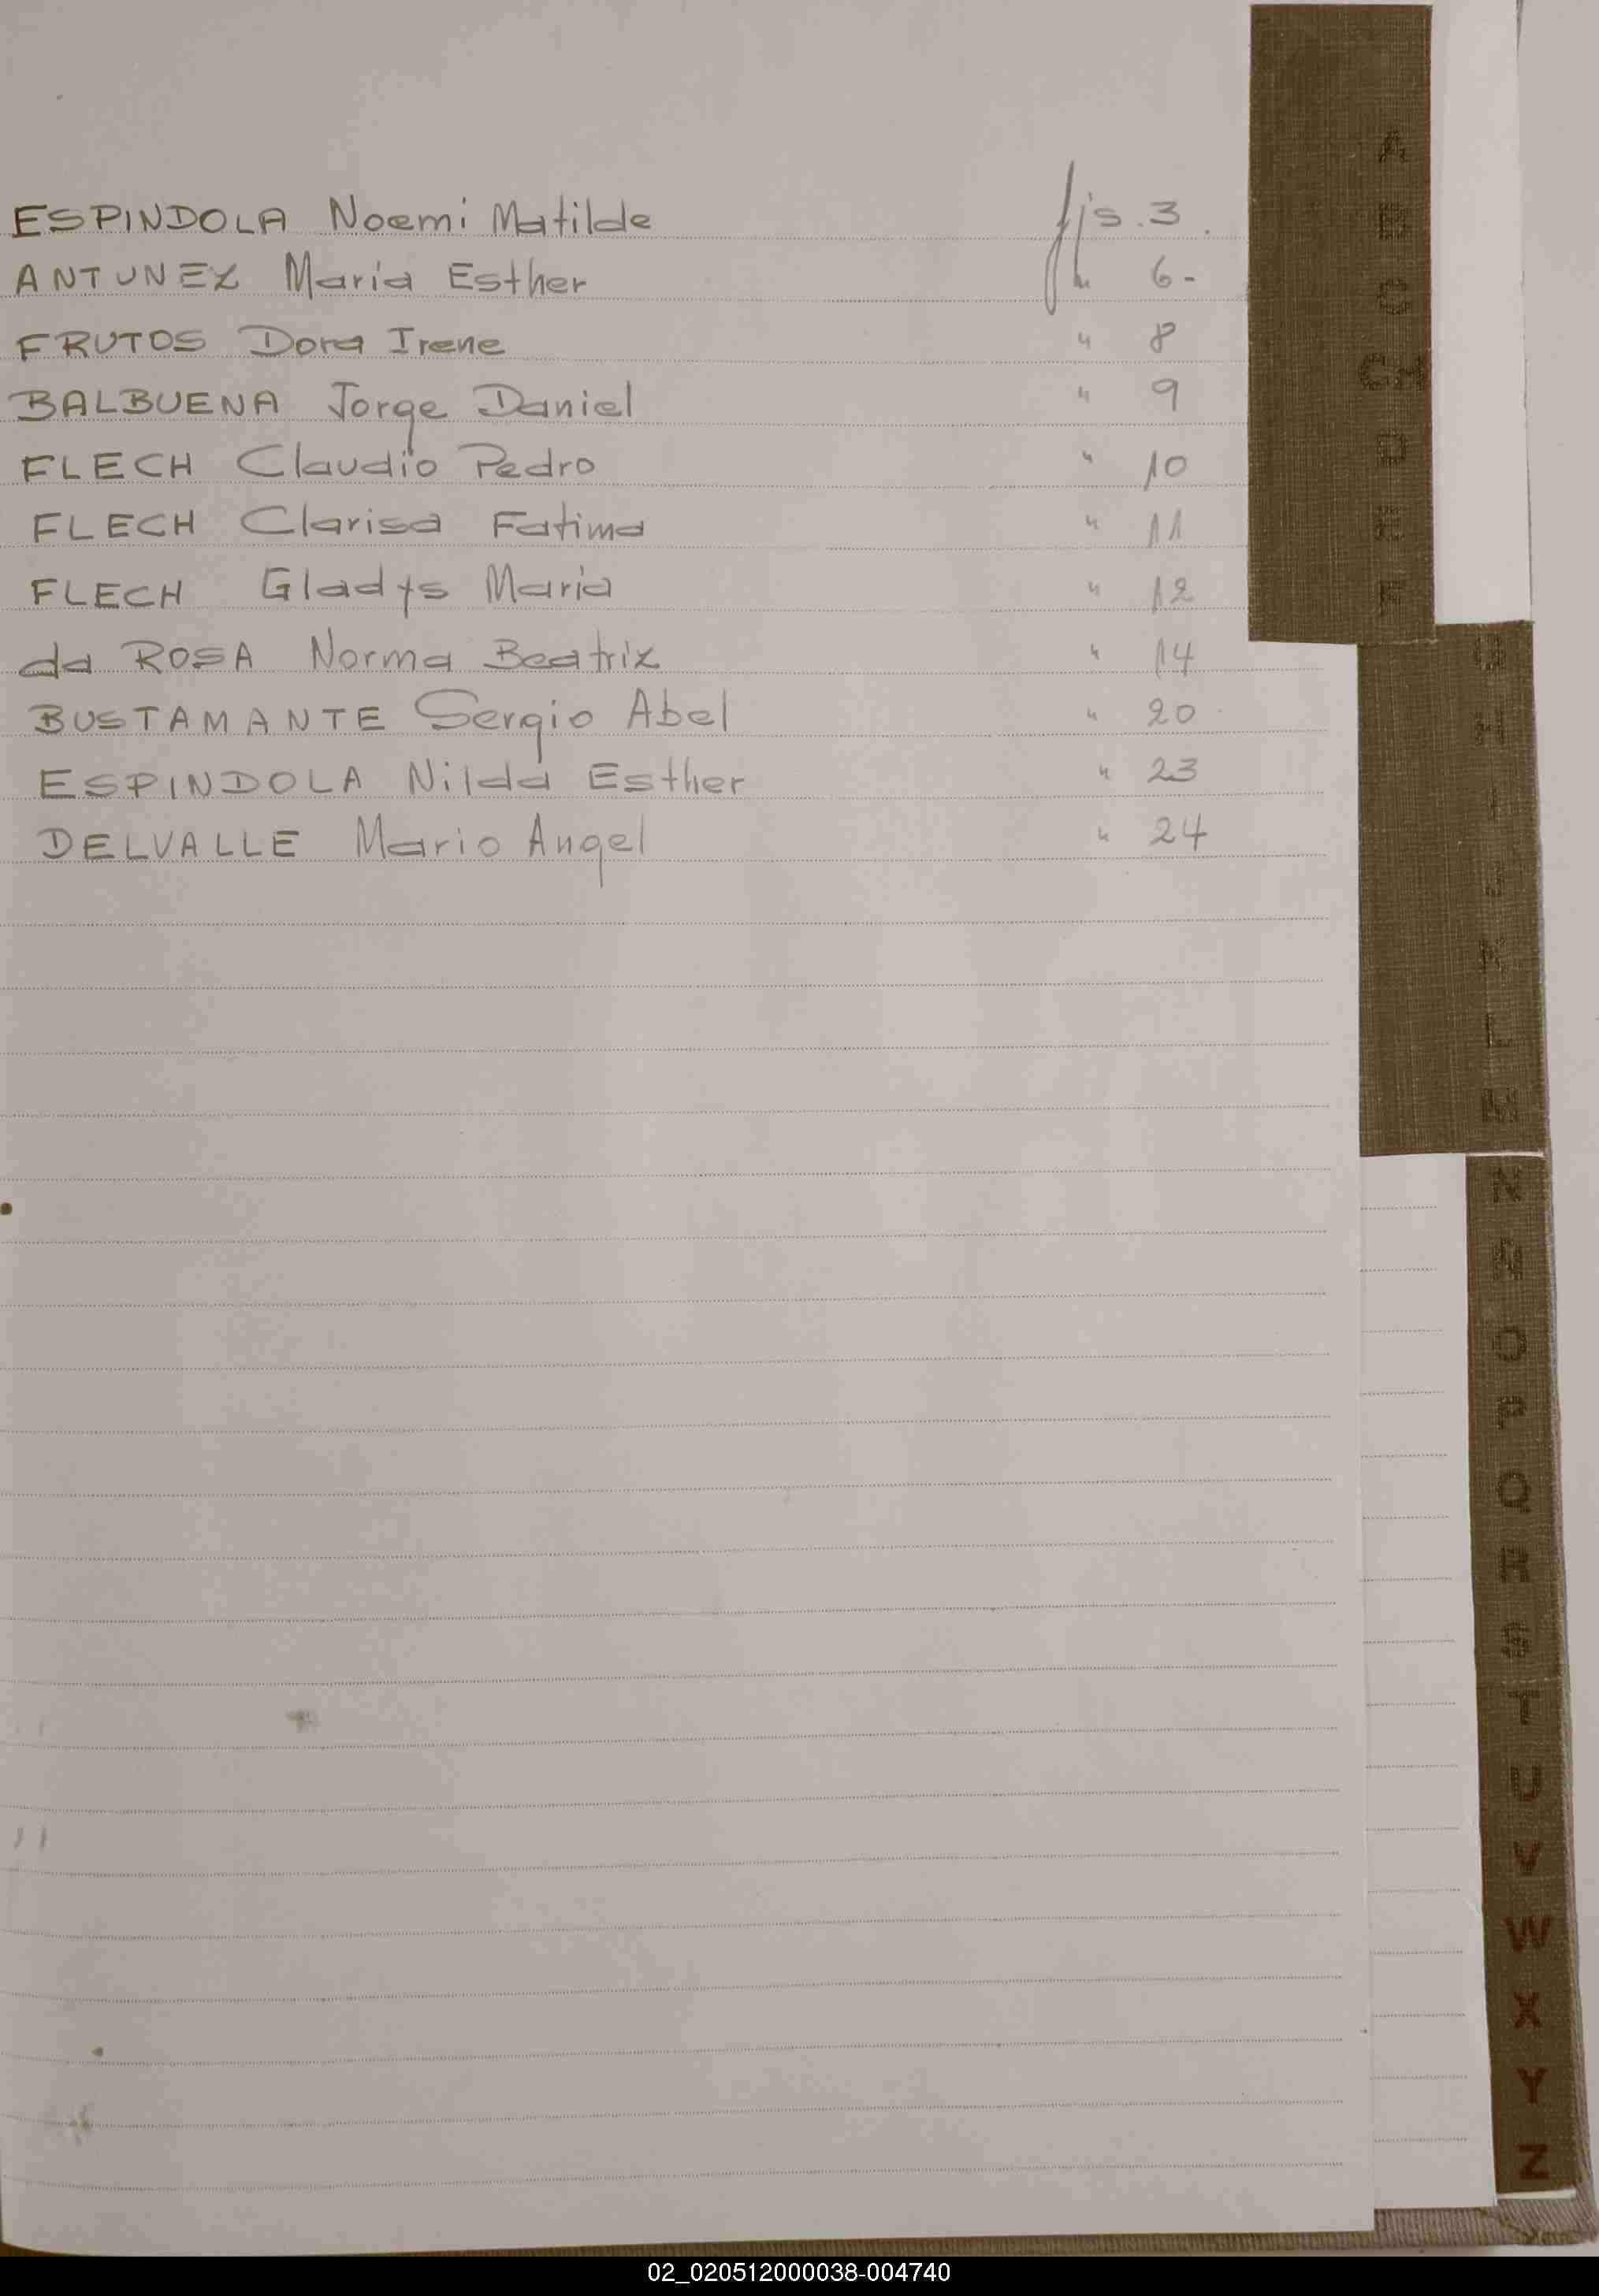 ESPINDOLA Noemi Matilde fjs. 3.
ANTUNEZ Maria Esther " 6-
FRUTOS Dora Irene " 8
BALBUENA Jorge Daniel " 9
FLECH Claudio Pedro " 10
FLECH Clarisa Fatima " 11
FLECH Gladys Maria " 12
da ROSA Norma Beatriz " 14
BUSTAMANTE Sergio Abel " 20
ESPINDOLA Nilda Esther " 23
DELVALLE Mario Angel " 24
A
B
C
CH
D
E
F
G
H
I
J
K
L
M
N
Ñ
O
P
Q
R
S
T
U
V
W
X
Y
Z
02_020512000038-004740